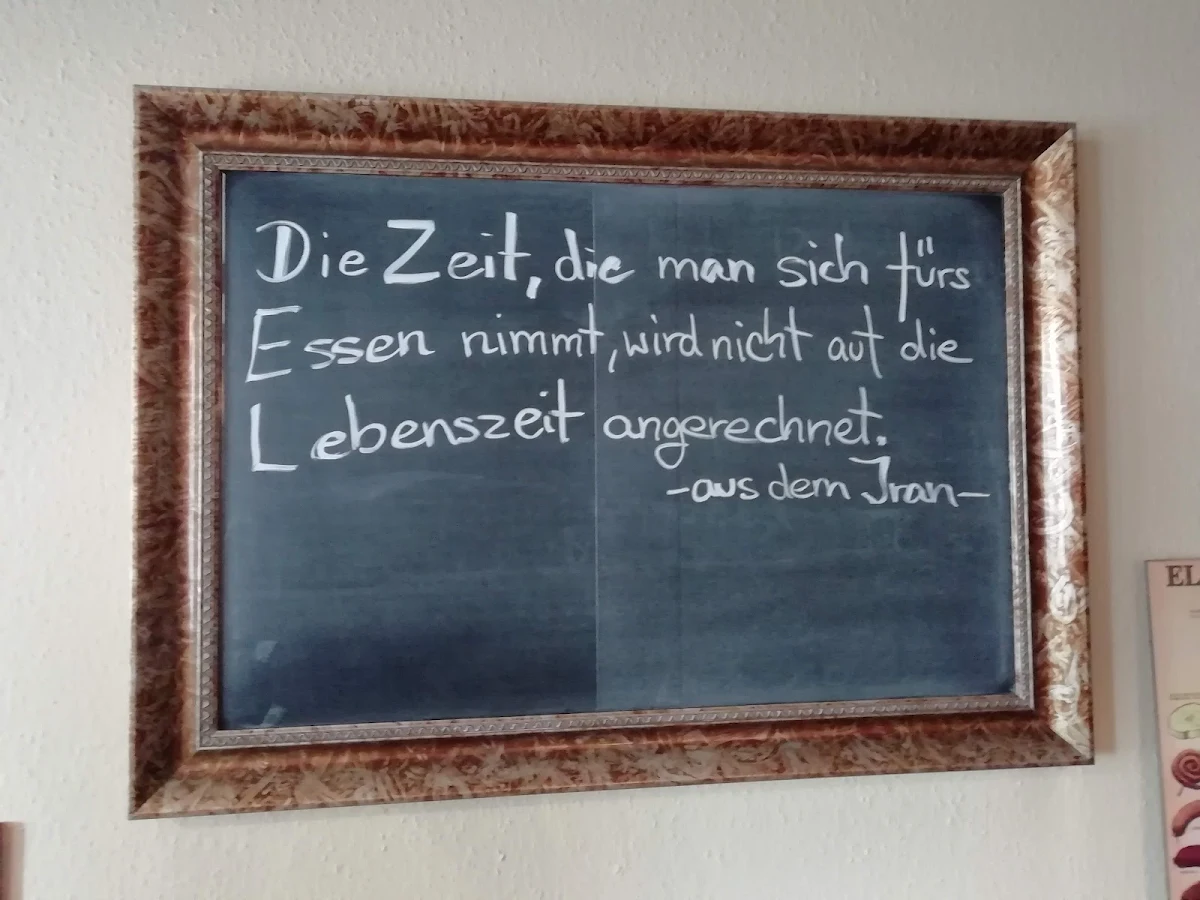 Die Zeit, die man sich fürs
Essen nimmt, wird nicht auf die
Lebenszeit angerechnet.
-aus dem Iran-
EL